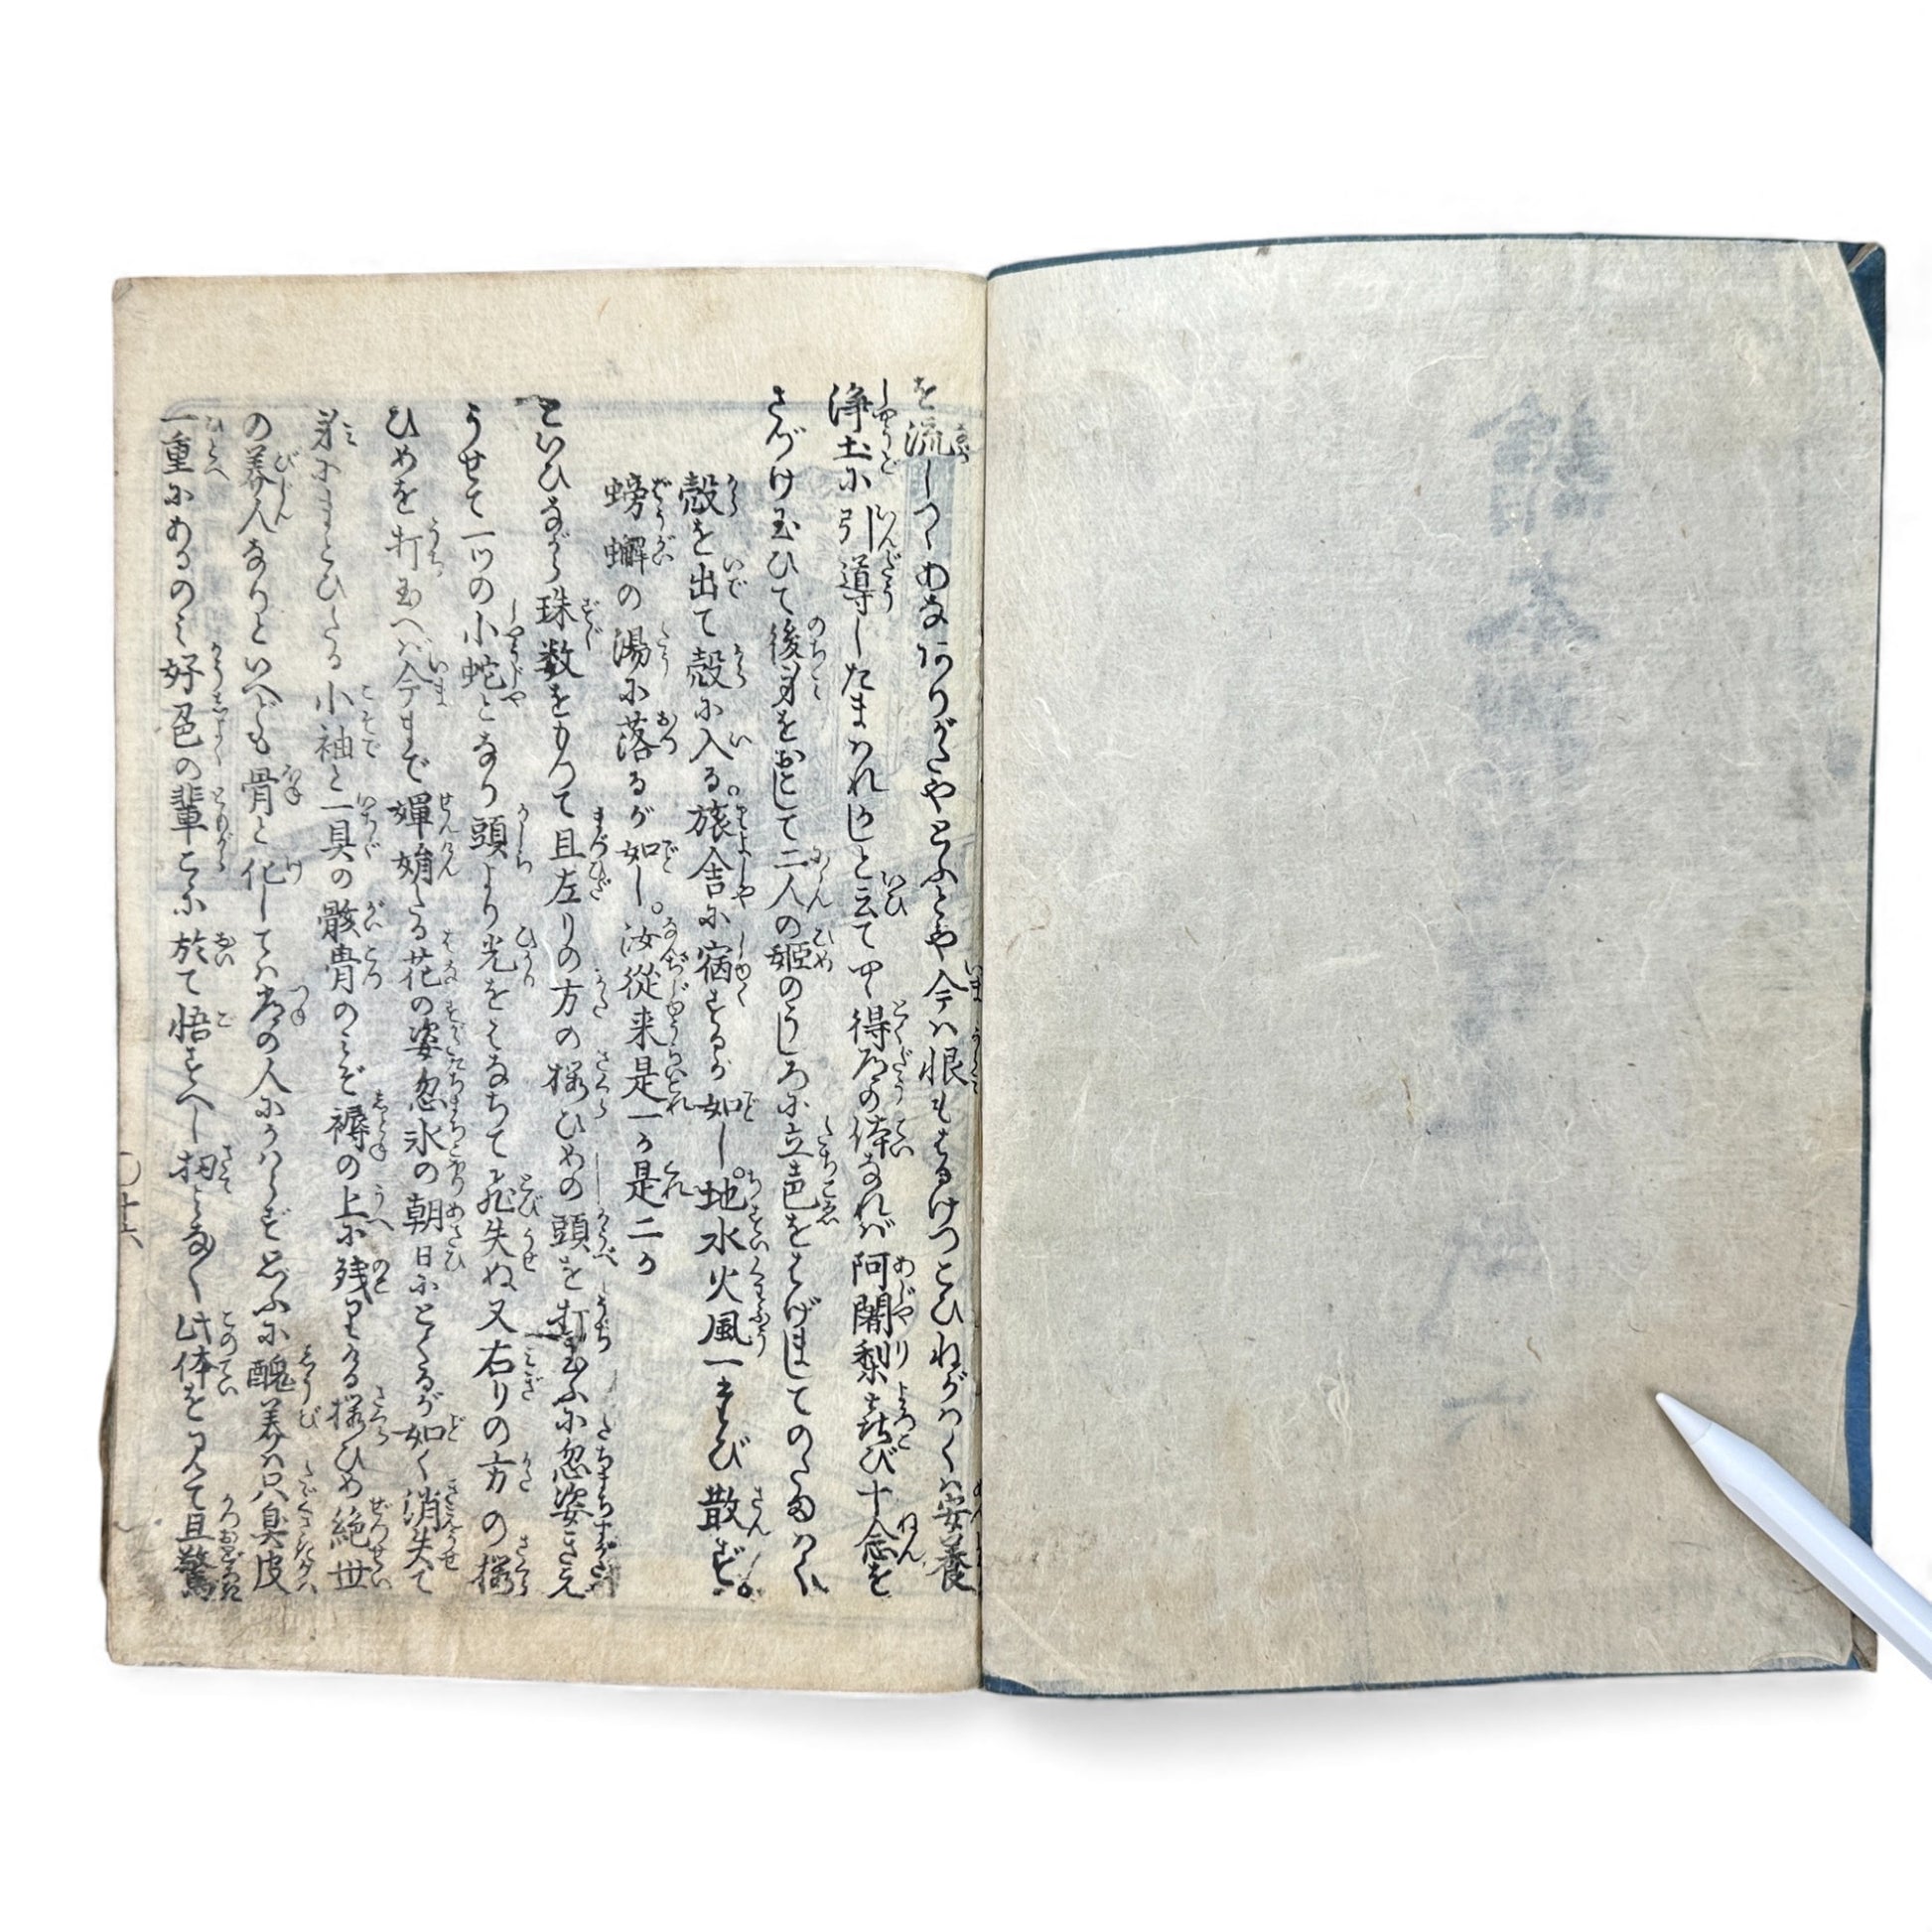 を流しつゝあなありがたやとふとや今ハ恨もはるけつこひねがハくハ安養
浄土に引導したまハれかしと云て甲得脱の体なれバ阿闍梨喜び十念を
さづけ玉ひて後身をおこして二人の姫のうしろに立色をはげましてのたまハく
殻を出て殻に入る。旅舎に宿するが如し。地水火風一たび散ず。
螃蠏の湯に落るが如し。汝従来是一か是二か
といひながら珠数をもつて且左りの方の桜ひめの頭を打玉ふに忽姿きえ
うせて一ツの小蛇となり頭より光をはなちて飛失ぬ又右りの方の桜
ひめを打玉へバ今まで嬋娟たる花の姿忽氷の朝日にとくるが如く消失て
身にまとひたる小袖と一具の骸骨のみぞ褥の上に残りける桜ひめ絶世
の美人なりといへども骨と化してハ常の人にかハらず思ふに醜美ハ只臭皮
一重にあるのミ好色の輩こゝに於て悟すべし扨みな〳〵此体を見て且驚
〇十六